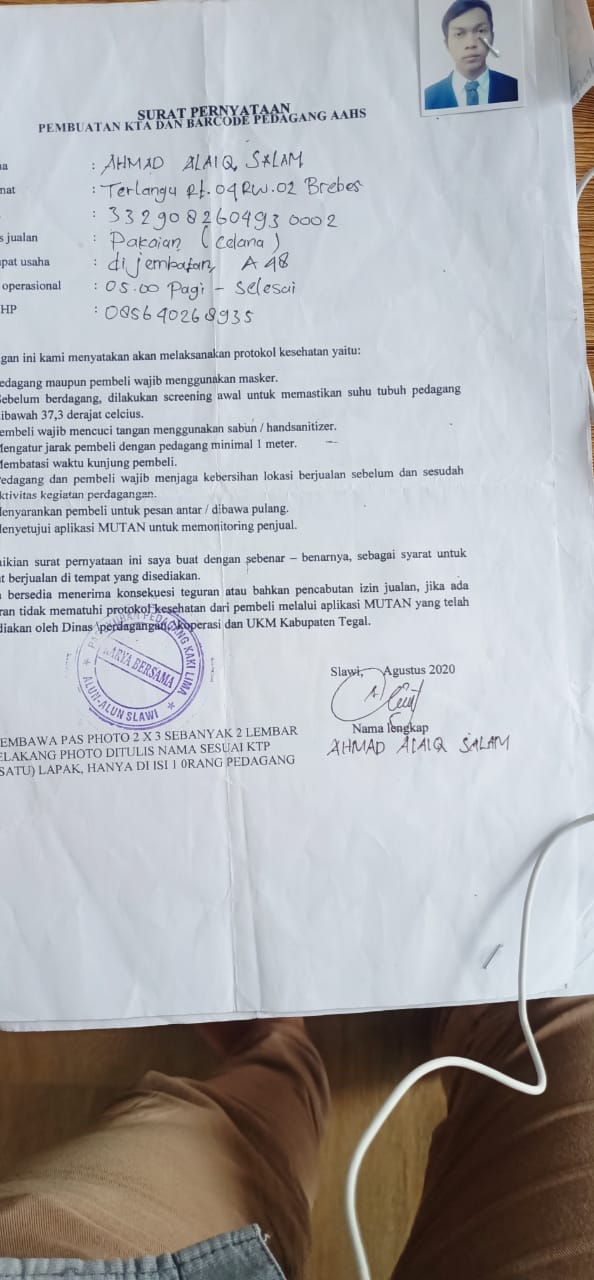 SURAT PERNYATAAN
PEMBUATAN KTA DAN BARCODE PEDAGANG AAHS
a : AHMAD ALAIQ SALAM
mat : Terlangu Rt. 04 RW. 02 Brebes
: 3329082604930002
s jualan : Pakaian (Celana)
pat usaha : di jembatan A 48
operasional : 05.00 Pagi - Selesai
HP : 085640268935
gan ini kami menyatakan akan melaksanakan protokol kesehatan yaitu:
edagang maupun pembeli wajib menggunakan masker.
ebelum berdagang, dilakukan screening awal untuk memastikan suhu tubuh pedagang
ibawah 37,3 derajat celcius.
embeli wajib mencuci tangan menggunakan sabun / handsanitizer.
Mengatur jarak pembeli dengan pedagang minimal 1 meter.
Membatasi waktu kunjung pembeli.
Pedagang dan pembeli wajib menjaga kebersihan lokasi berjualan sebelum dan sesudah
ktivitas kegiatan perdagangan.
Menyarankan pembeli untuk pesan antar / dibawa pulang.
Menyetujui aplikasi MUTAN untuk memonitoring penjual.
ikian surat pernyataan ini saya buat dengan sebenar – benarnya, sebagai syarat untuk
t berjualan di tempat yang disediakan.
bersedia menerima konsekuesi teguran atau bahkan pencabutan izin jualan, jika ada
ran tidak mematuhi protokol kesehatan dari pembeli melalui aplikasi MUTAN yang telah
diakan oleh Dinas perdagangan, koperasi dan UKM Kabupaten Tegal.
PEDAGANG KAKI LIMA
KARYA BERSAMA
ALUN-ALUN SLAWI
Slawi, Agustus 2020
Nama lengkap
AHMAD ALAIQ SALAM
EMBAWA PAS PHOTO 2 X 3 SEBANYAK 2 LEMBAR
ELAKANG PHOTO DITULIS NAMA SESUAI KTP
SATU) LAPAK, HANYA DI ISI 1 0RANG PEDAGANG